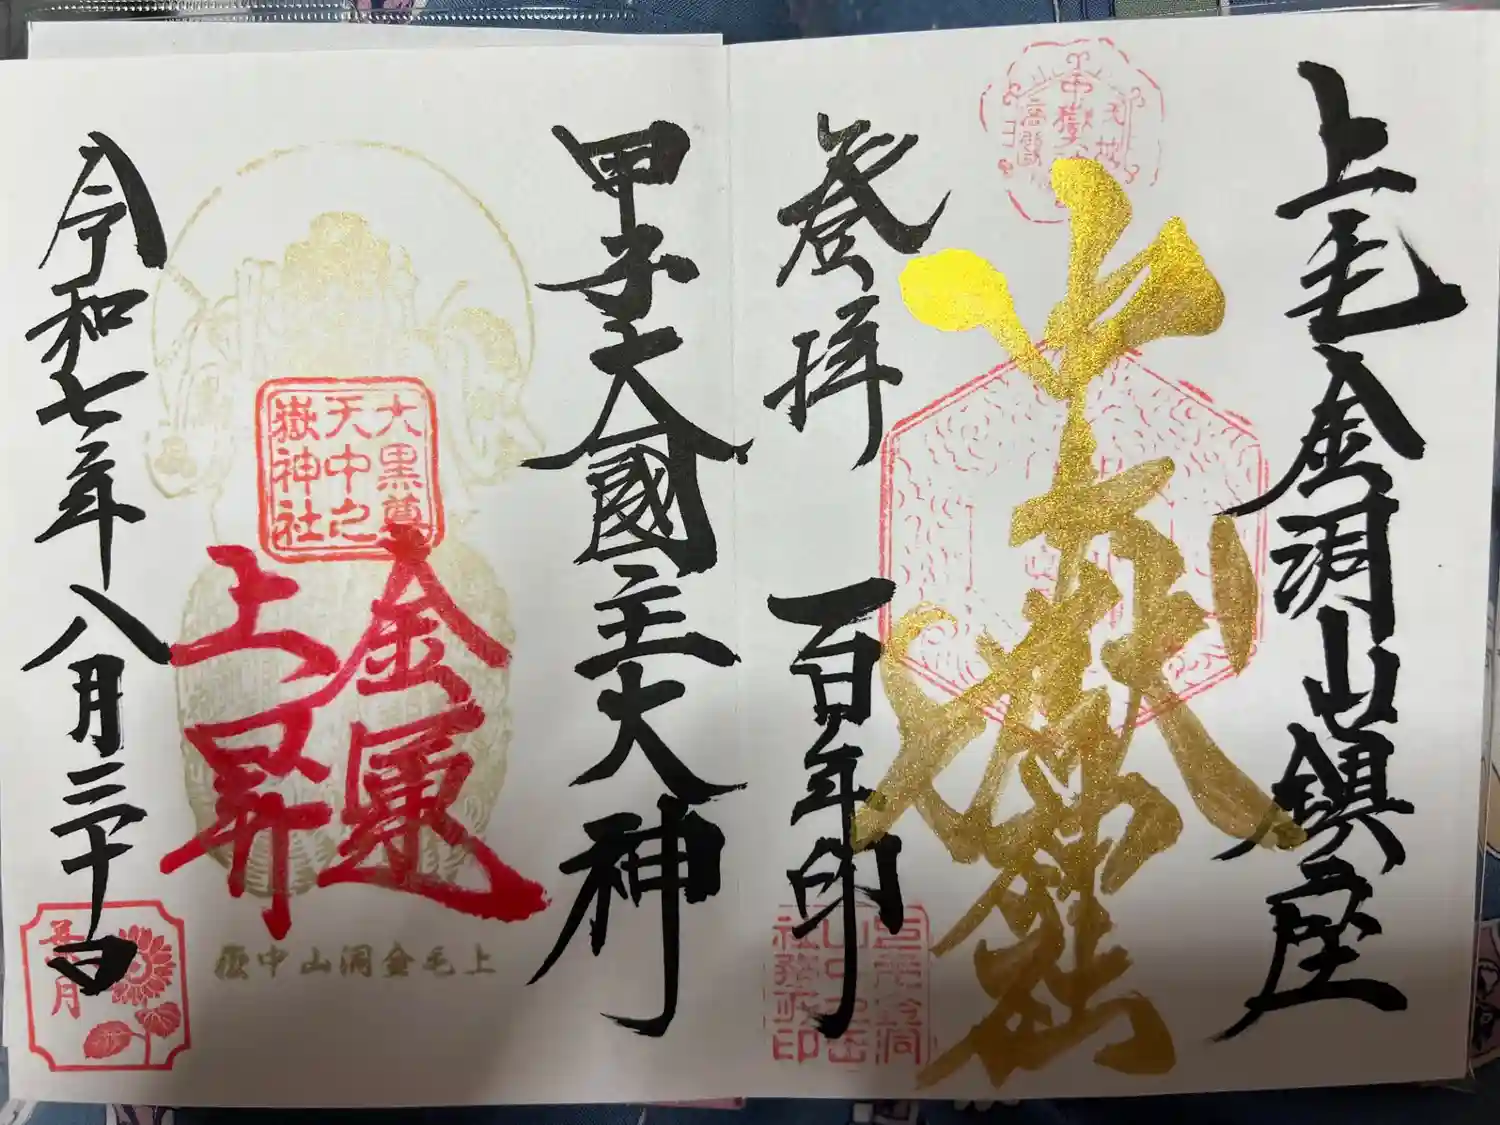 上毛金洞山鎮座
中嶽神社
登拝 百年印
甲子大國主大神
大黒尊
天中之
嶽神社
金運
上昇
上毛金洞山中嶽
令和七年八月三十日
葉月